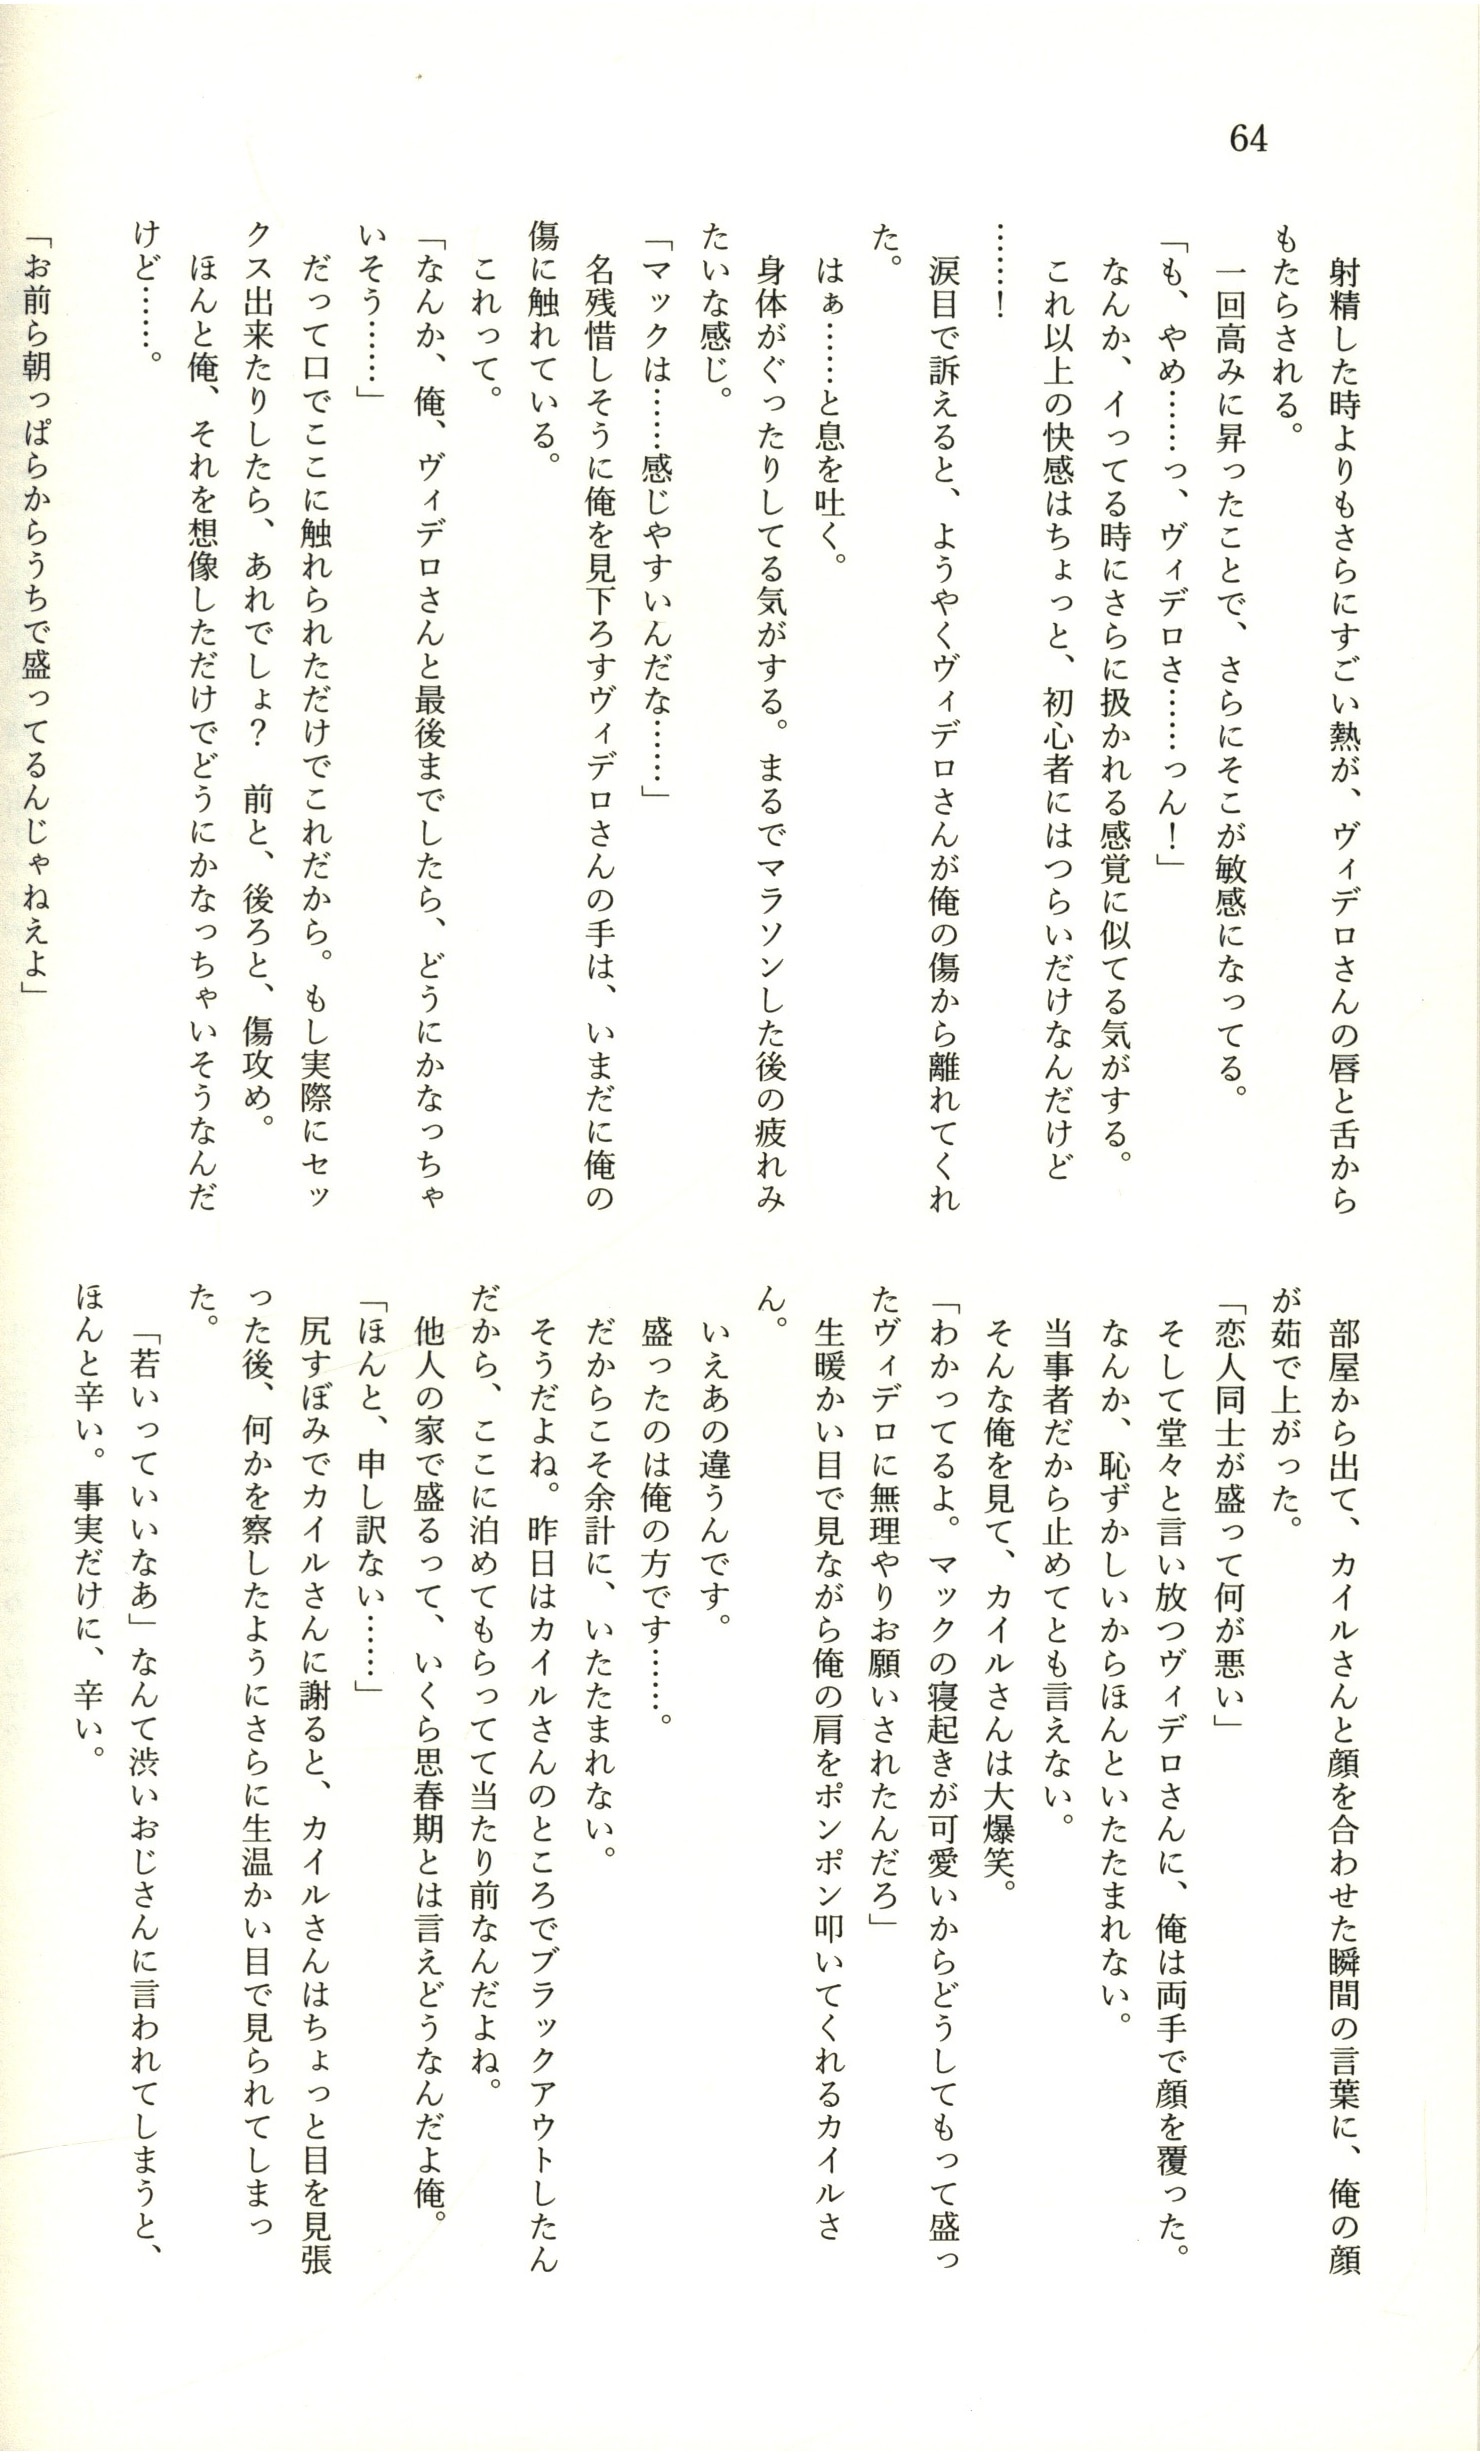 64
射精した時よりもさらにすごい熱が、ヴィデロさんの唇と舌から
もたらされる。
一回高みに昇ったことで、さらにそこが敏感になってる。
「も、やめ……っ、ヴィデロさ……っん！」
なんか、イってる時にさらに扱かれる感覚に似てる気がする。
これ以上の快感はちょっと、初心者にはつらいだけなんだけど
……！
涙目で訴えると、ようやくヴィデロさんが俺の傷から離れてくれ
た。
はぁ……と息を吐く。
身体がぐったりしてる気がする。まるでマラソンした後の疲れみ
たいな感じ。
「マックは……感じやすいんだな……」
名残惜しそうに俺を見下ろすヴィデロさんの手は、いまだに俺の
傷に触れている。
これって。
「なんか、俺、ヴィデロさんと最後までしたら、どうにかなっちゃ
いそう……」
だって口でここに触れられただけでこれだから。もし実際にセッ
クス出来たりしたら、あれでしょ？　前と、後ろと、傷攻め。
ほんと俺、それを想像しただけでどうにかなっちゃいそうなんだ
けど……。
「お前ら朝っぱらからうちで盛ってるんじゃねえよ」
部屋から出て、カイルさんと顔を合わせた瞬間の言葉に、俺の顔
が茹で上がった。
「恋人同士が盛って何が悪い」
そして堂々と言い放つヴィデロさんに、俺は両手で顔を覆った。
なんか、恥ずかしいからほんといたたまれない。
当事者だから止めてとも言えない。
そんな俺を見て、カイルさんは大爆笑。
「わかってるよ。マックの寝起きが可愛いからどうしてもって盛っ
たヴィデロに無理やりお願いされたんだろ」
生暖かい目で見ながら俺の肩をポンポン叩いてくれるカイルさ
ん。
いえあの違うんです。
盛ったのは俺の方です……。
だからこそ余計に、いたたまれない。
そうだよね。昨日はカイルさんのところでブラックアウトしたん
だから、ここに泊めてもらってて当たり前なんだよね。
他人の家で盛るって、いくら思春期とは言えどうなんだよ俺。
「ほんと、申し訳ない……」
尻すぼみでカイルさんに謝ると、カイルさんはちょっと目を見張
った後、何かを察したようにさらに生温かい目で見られてしまっ
た。
「若いっていいなあ」なんて渋いおじさんに言われてしまうと、
ほんと辛い。事実だけに、辛い。